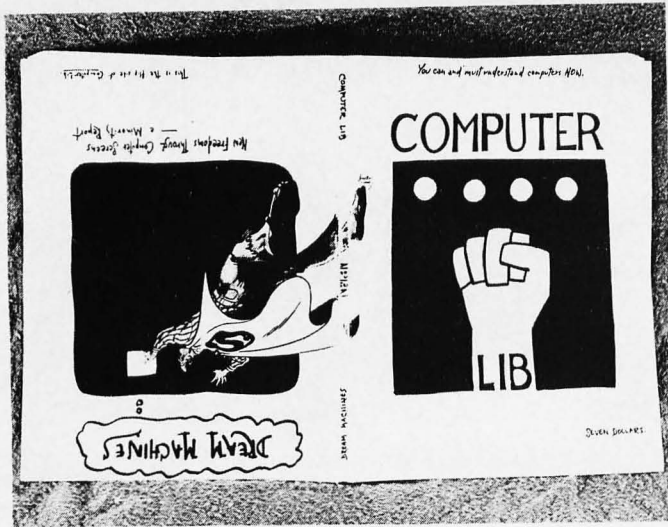 You can and must understand computers NOW.
COMPUTER
LIB
SEVEN DOLLARS.
COMPUTER LIB
DREAM MACHINES
This is the flip side of Computer Lib
New Freedoms Through Computer Screens
— a Minority Report
S
DREAM MACHINES